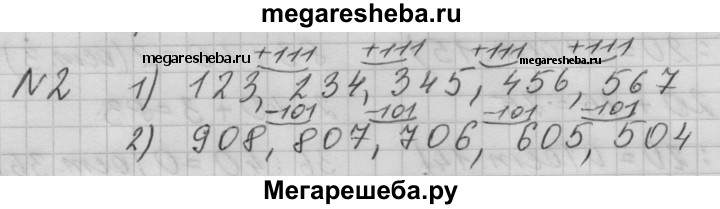 megaresheba.ru
+111 +111 +111 +111
megaresheba.ru megaresheba.ru
N2 1) 123, 234, 345, 456, 567
-101 -101 -101 -101
2) 908, 807, 706, 605, 504
Мегарешеба.ру